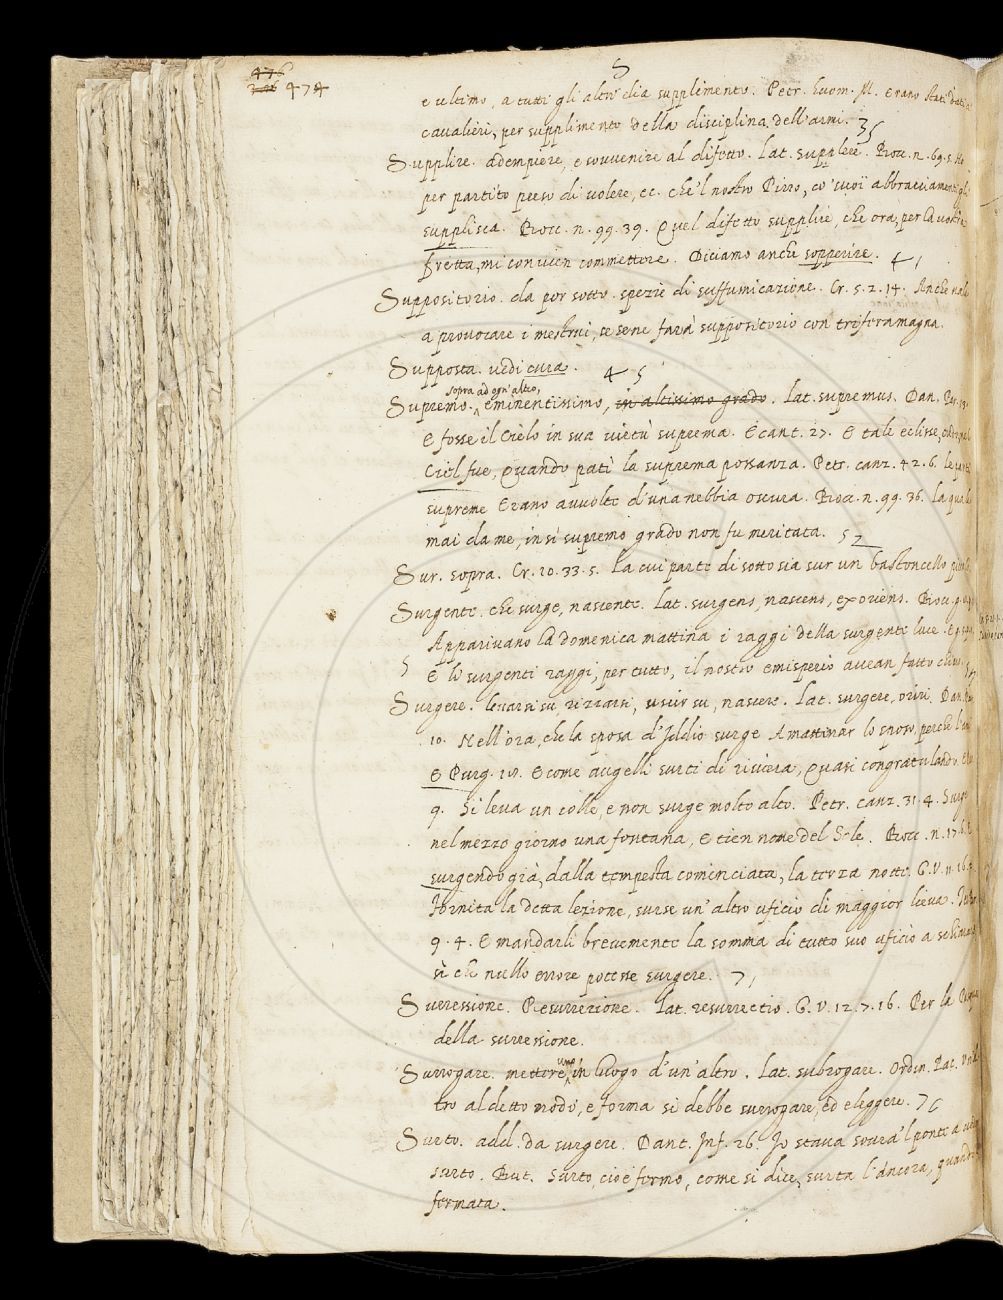 476
474
S
e ultimo, a tutti gli altri dia supplimento. Petr. huom. ill. erano stati dati a
cavalieri, per supplimento della disciplina dell'armi. 35
Supplire. adempiere, e sovvenire al difetto. Lat. supplere. Bocc. n. 69. 5. Ho
per partito preso di volere, ec. che'l nostro Pirro, co' suoi abbracciamenti gli
supplisca. Bocc. n. 99. 39. Quel difetto supplir, che ora, per la vostra
fretta, mi convien commettere. Diciamo anche sopperire. 41
Suppositorio. da por sotto. spezie di suffumicazione. Cr. 5. 2. 14. Anche vale
a provocare i mestrui, se sene farà suppositorio con trifera magna.
Supposta. vedi cura. 45
sopra ad ogn'altro,
Supremo. eminentissimo, in altissimo grado. Lat. supremus. Dan. Par. 13.
E fosse il Cielo in sua virtù suprema. E cant. 27. E tale eclisse, credo, che'n
Ciel fue, Quando patì la suprema possanza. Petr. canz. 42. 6. Le parti
supreme Erano avvolte d'una nebbia oscura. Bocc. n. 99. 36. La quale
mai da me, in sì supremo grado non fu meritata. 52
Sur. sopra. Cr. 10. 33. 5. La cui parte di sotto sia sur un bastoncello
Surgente. che surge, nascente. Lat. surgens, nascens, exoriens. Bocc.
Apparivano la domenica mattina i raggi della surgente luce.
5 E lo surgenti raggi, per tutto, il nostro emisperio avean fatto chiaro.
Surgere. levarsi su, rizzarsi, uscir su, nascere. Lat. surgere, oriri. Dan. Par.
10. Nell'ora, che la sposa d'Iddio surge A mattinar lo sposo, perchè l'ami
E Purg. 18. E come augelli surti di riviera, Quasi congratulando.
9. Si leva un colle, e non surge molto alto. Petr. canz. 31. 4. Surge
nel mezzo giorno una fontana, E tien nome del Sole. Bocc. n. 17.
surgendo già, dalla tempesta cominciata, la terza notte. G. V. 11.
Fornita la detta lezione, surse un'altro uficio di maggior lieva.
9. 4. E mandarli brevemente la somma di tutto suo uficio a
sì che nullo errore potesse surgere. 71
Surressione. Resurrezione. Lat. resurrectio. G. V. 12. 7. 16. Per la Pasqua
della surressione.
uno
Surrogare. mettere in luogo d'un'altro. Lat. subrogare. Ordin. Pac.
tro al detto modo, e forma si debbe surrogare, ed eleggere. 76
Surto. add. da surgere. Dant. Inf. 26. Io stava sovra'l ponte a veder
surto. But. Surto, cioè fermo, come si dice, surta l'ancora, quando
fermata.